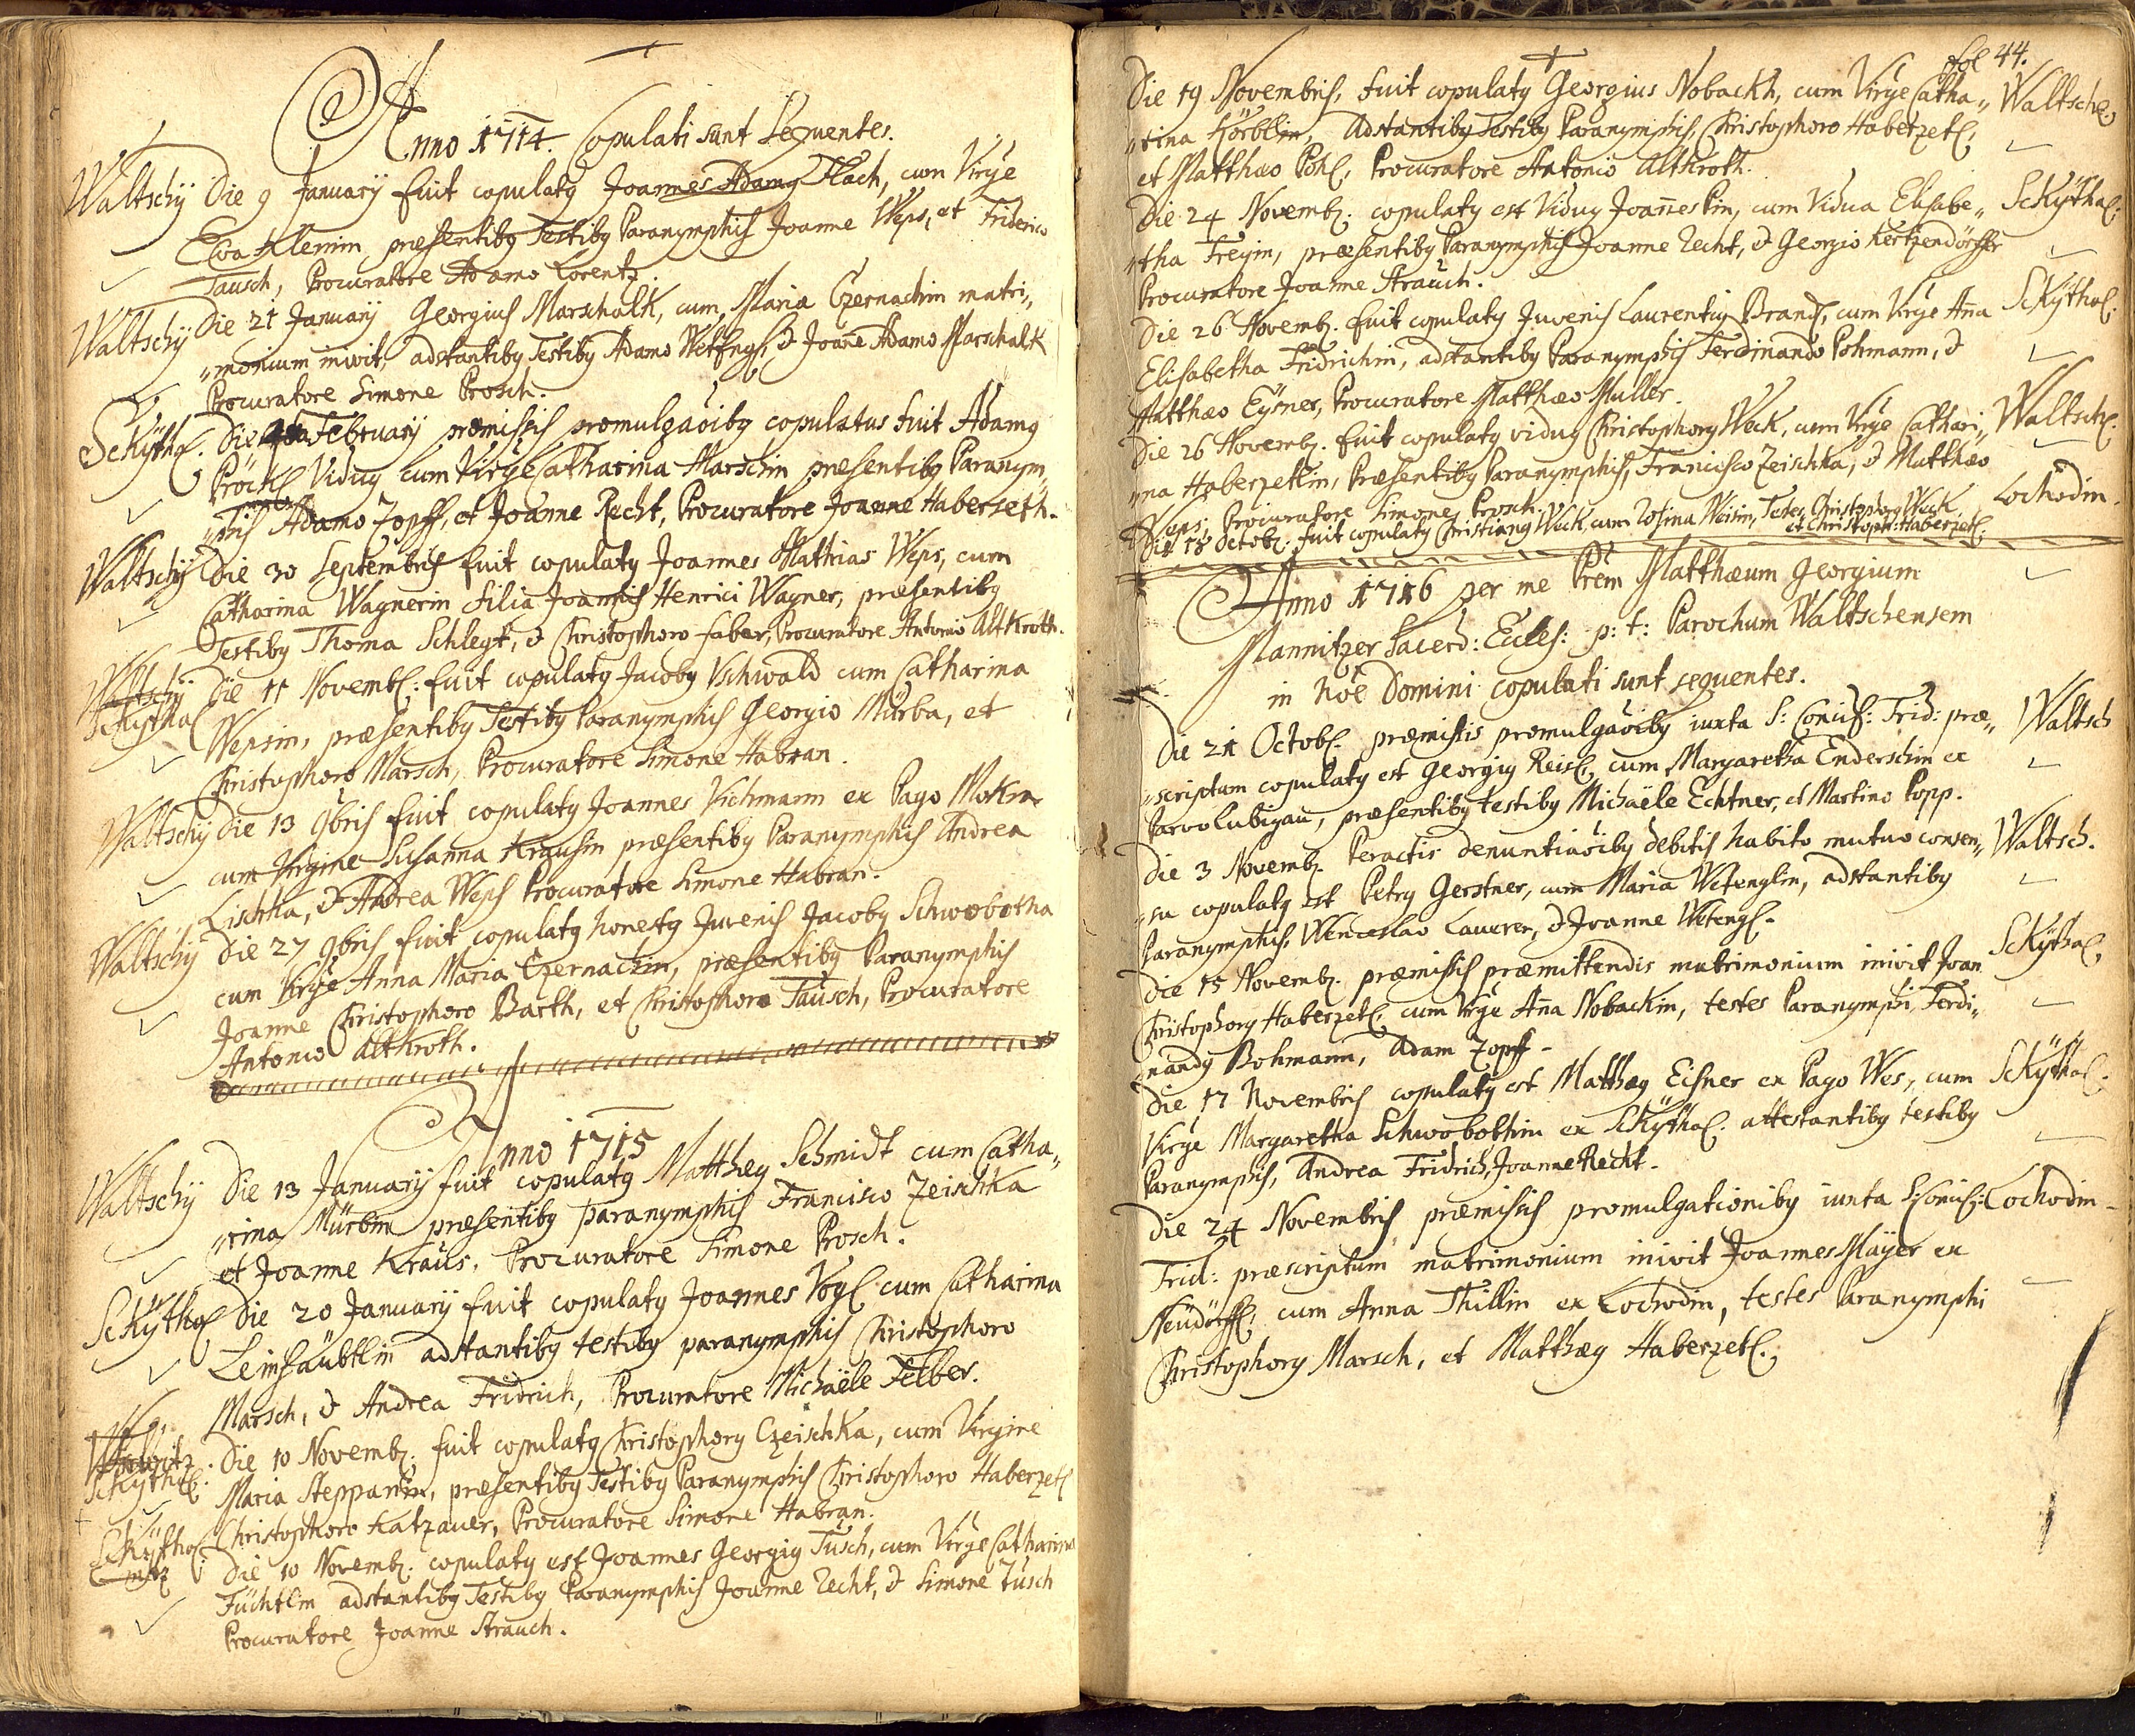 Anno 1714. Copulati sunt Sequentes.
Waltschÿ Die 9 Januarÿ fuit copulatq Joannes Adamq Flach, cum Virge
Eva Klemin, præsentibq Testibq Paranymphis Joanne Weps, et Friderico
Tausch, Procuratore Adamo Lorentz.
Waltschÿ Die 21 Januarÿ Georgius Marschalk, cum Maria Czernachin matri„
„monium inivit, adstantibq Testibq Adamo Wetengl, & Joane Adamo Marschalk
Procuratore Simone Prosch.
Sckÿthal. Die Februarÿ præmissis promulgaõibq copulatus fuit Adamq
Pröckl Viduq cum Virge Catharina Marschin præsentibq Paranym„
„phis Adamo Zopff, et Joanne Recht, Procuratore Joanne Haberzeth.
Waltschÿ Die 30 Septembris fuit copulatq Joannes Mathias Weps, cum
Catharina Wagnerin filia Joannis Henrici Wagner, præsentibq
Testibq Thoma Schlegt, & Christophoro Faber, Procuratore Antonio Altkroth.
Waltschÿ Die 11 Novembr: fuit copulatq Jacobq Vschwald cum Catharina
Sckÿthal Wepsin, præsentibq Testibq Paranymphis Georgio Mürba, et
Christophoro Marsch, Procuratore Simone Habran.
Waltschÿ Die 13 9bris fuit copulatq Joannes Vichmann ex Pago Mokra
cum Virgine Susanna Krausin præsentibq Paranymphis Andrea
Lischka, & Andrea Weps Procuratore Simone Habran.
Waltschÿ Die 27 9bris fuit copulatq honestq Juvenis Jacobq Schwobotha
cum Virge Anna Maria Czernachin, præsentibq Paranymphis
Joanne Christophoro Barth, et Christophoro Tausch, Procuratore
Antonio Altkroth.
Anno 1715
Waltschÿ Die 13 Januarÿ fuit copulatq Matthæq Schmidt cum Catha„
„rina Mürbin præsentibq paranymphis Francisco Zeischka
et Joanne Kraus, Procuratore Simone Prosch.
Sckÿthal Die 20 Januarÿ fuit copulatq Joannes Vogl cum Catharina
Leinhäubtlin adstantibq testibq paranymphis Christophoro
Marsch, & Andrea Fridrich, Procuratore Michaële Felber.
Die 10 Novemb. fuit copulatq Christophorq Czeischka, cum Virgine
Sckÿthal. Maria Steppanin, præsentibq Testibq Paranymphis Christophoro Haberzetl
Christophoro Katzauer, Procuratore Simone Habran.
Sckÿthal Die 10 Novemb. copulatq est Joannes Georgiq Tusch, cum Virge Catharina
Füchtlin adstantibq Testibq Paranymphis Joanne Recht, & Simone Tusch
Procuratore Joanne Strauch.
fol 44.
Die 19 Novembris, fuit copulatq Georgius Nobackh, cum Virge Catha„ Waltsch.
„rina Körblin, Adstantibq Testibq Paranymphis, Christophoro Haberzetl,
et Matthæo Pohl, Procuratore Antonio Altkroth.
Die 24 Novemb. copulatq est Viduq Joannes Pin, cum Vidua Elisabe„ Sckÿthal.
„tha Freyin, præsentibq Paranymphis Joanne Recht, & Georgio Kertzendörffer
Procuratore Joanne Strauch.
Die 26 Novemb. fuit copulatq Juvenis Laurentiq Brandl, cum Virge Aña Sckÿthal.
Elisabetha Fridrichin, adstantibq Paranymphis Ferdinando Pohmann, &
Matthæo Eÿsner, Procuratore Matthæo Müller.
Die 26 Novemb. fuit copulatq viduq Christophorq Weck, cum Virge Cathari„ Waltsch.
„na Haberzetlin, Præsentibq Paranymphis, Francisco Zeischka, & Matthæo
Weps, Procuratore Simone Prosch.
Die 18 Octob. fuit copulatq Christianq Weck, cum Rosina Weisin, Testes Christophorq Weck Lochodin.
et Christoph: Haberzetl.
Anno 1716 per me Prem Matthæum Georgium
Mannitzer Sacerd: Eccles: p: t: Parochum Waltschensem
in Noe Domini copulati sunt sequentes.
Die 21 Octob. præmissis promulgaõibq iuxta S: Concil: Trid: præ„ Waltsch
„scriptum copulatq est Georgiq Reisl, cum Margaretha Enderschin ex
Parvolubigau, præsentibq testibq Michaële Echtner, et Martino Popp.
Die 3 Novemb. Peractis denuntiaõibq debitis habito mutuo consen„ Waltsch.
„su copulatq est Petrq Gerstner, cum Maria Wetenglin, adstantibq
Paranymphis, Wenceslao Lauerer, & Joanne Wetengl.
Die 15 Novemb. præmissis præmittendis matrimonium inivit Joan Sckÿthal,
Christophorq Haberzetl, cum Virge Aña Nobackin, testes Paranymphi, Ferdi„
„nandq Bohmann, Adam Zopff.
Die 17 Novembris copulatq est Matthæq Eisner ex Pago Wes, cum Sckÿthal.
Virge Margaretha Schwobothin ex Sckÿthal. attestantibq testibq
Paranymphis, Andrea Fridrich, Joanne Recht.
Die 24 Novembris præmissis promulgationibq iuxta S: Concil: Lochodin
Trid: præscriptum matrimonium inivit Joannes Maÿer ex
Neüdörffl, cum Anna Thillin ex Lochodin, testes Paranymphi
Christophorq Marsch, et Matthæq Haberzetl.